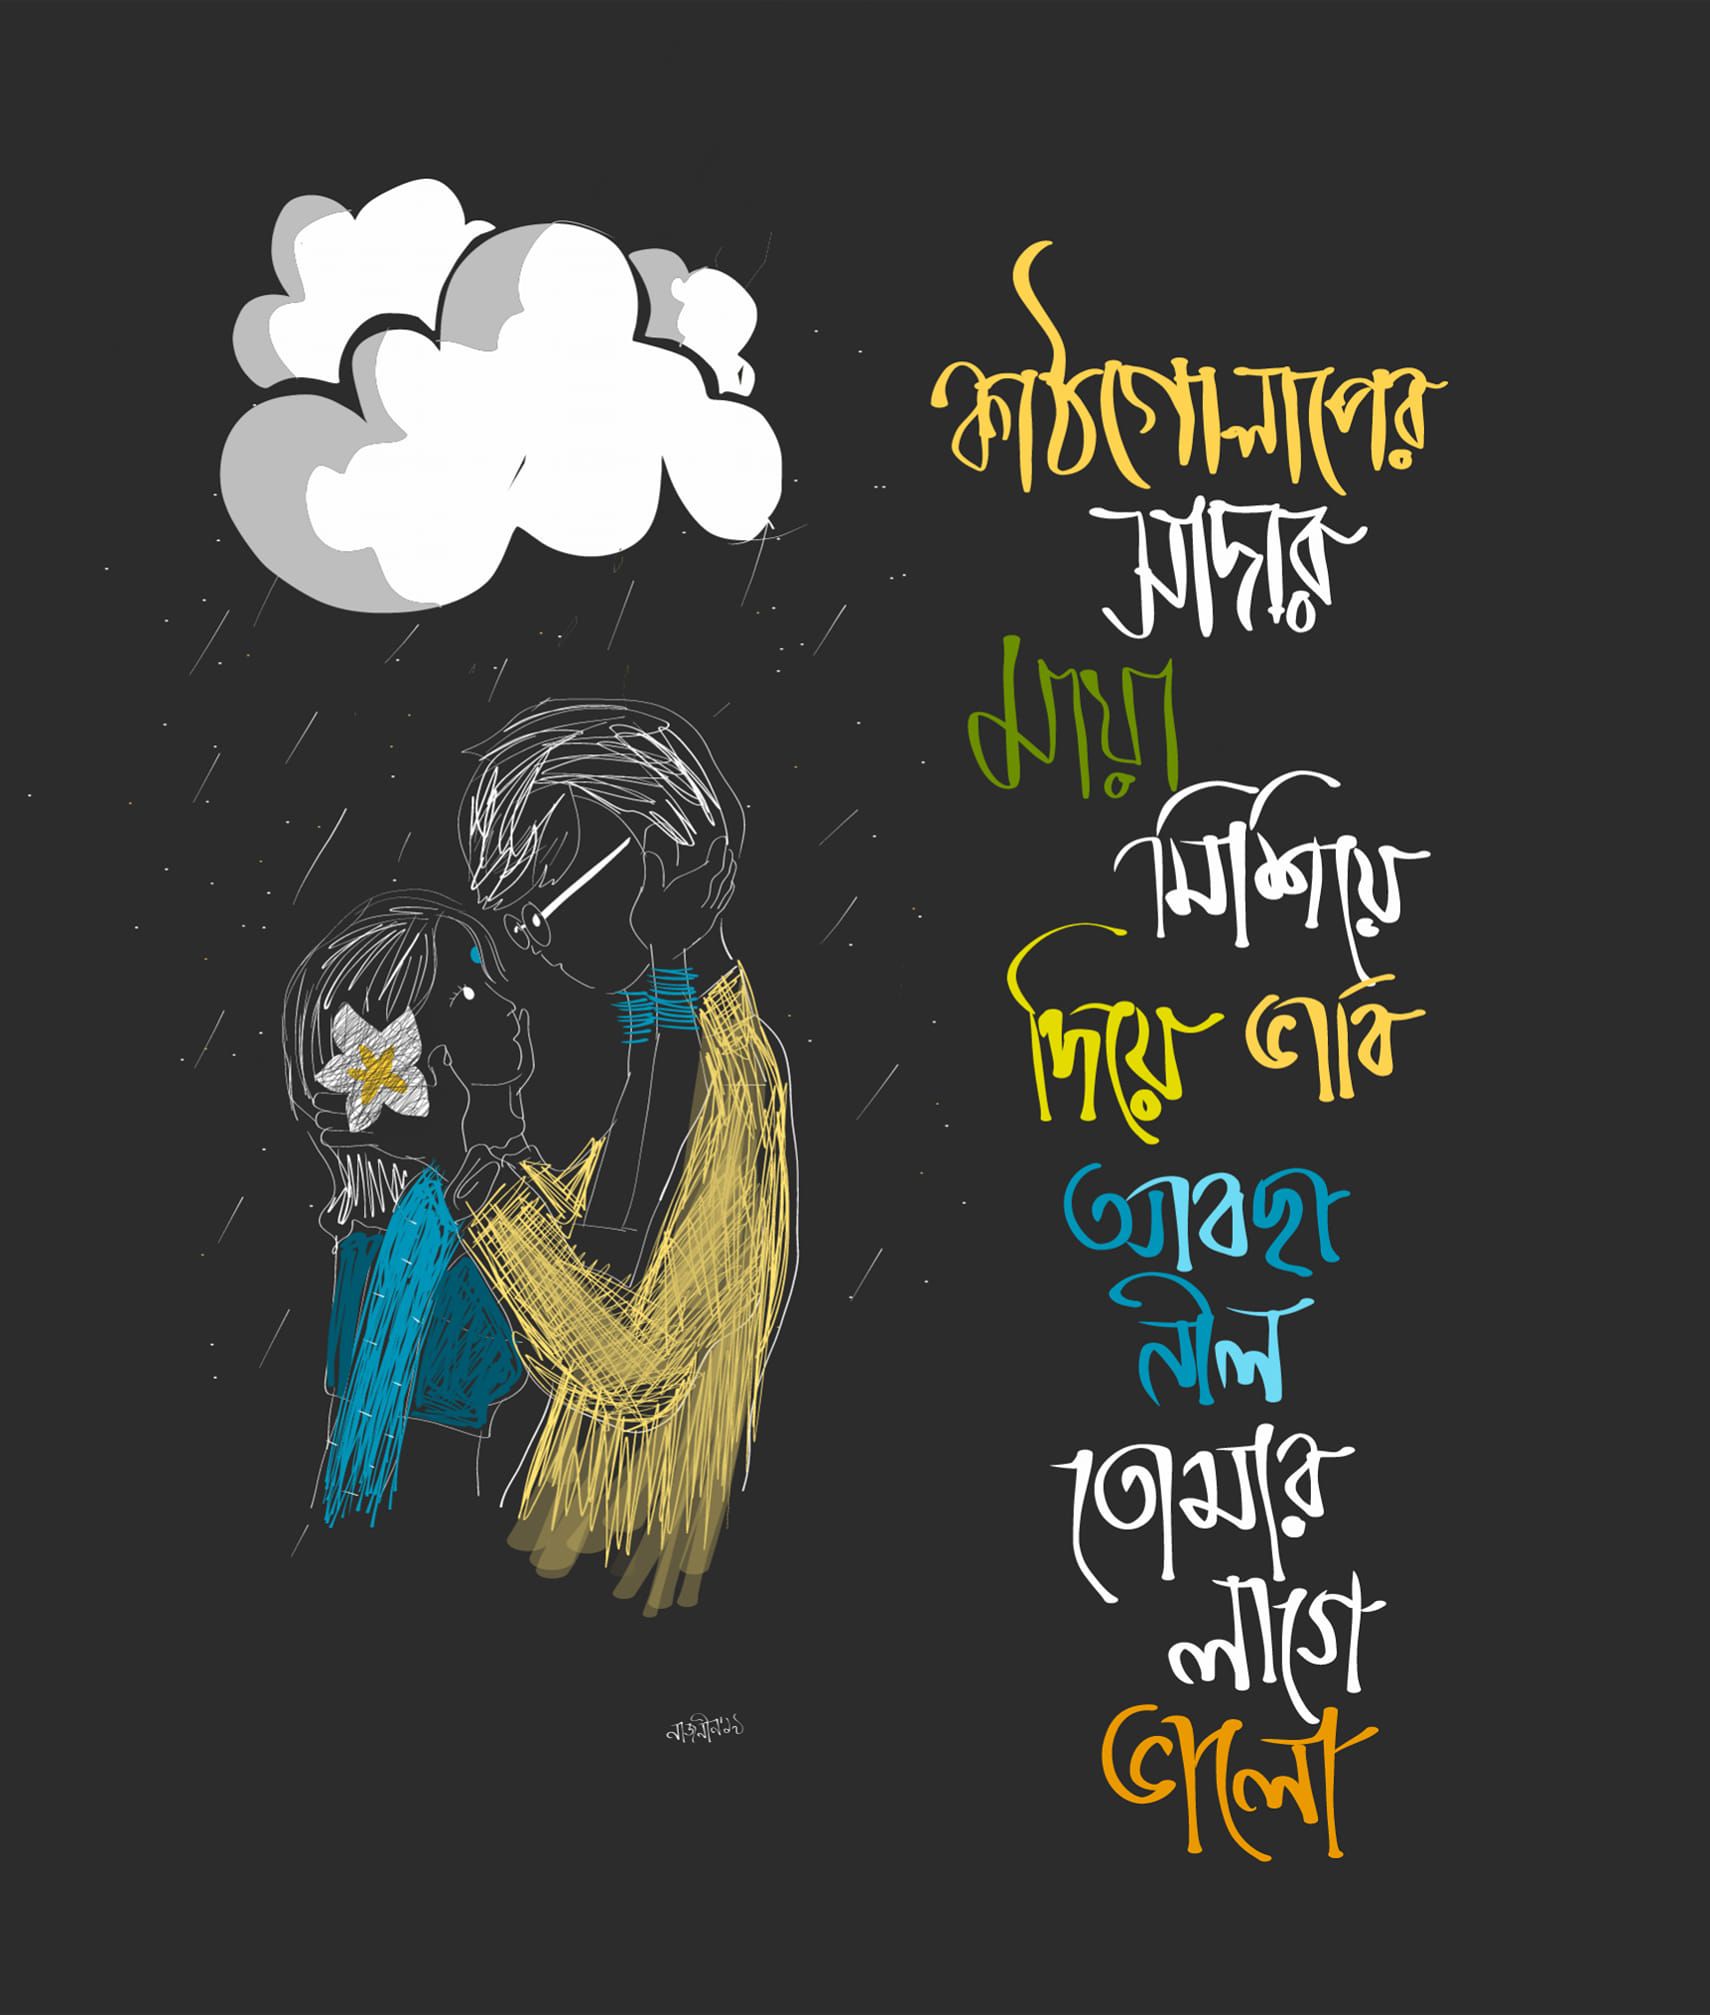 কাঠগোলাপের
সাদার
মায়া
মিশিয়ে
দিয়ে ভাবি
আবছা
নীল
তোমার
লাগে
ভালো